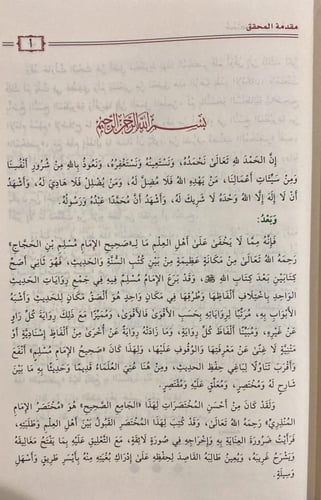 مقدمة المحقق
١
بِسْمِ اللَّهِ الرَّحْمَنِ الرَّحِيمِ
إِنَّ الْحَمْدَ لِلَّهِ تَعَالَىٰ نَحْمَدُهُ، وَنَسْتَعِينُهُ وَنَسْتَغْفِرُهُ، وَنَعُوذُ بِاللَّهِ مِنْ شُرُورِ أَنْفُسِنَا
وَمِنْ سَيِّئَاتِ أَعْمَالِنَا، مَنْ يَهْدِهِ اللَّهُ فَلَا مُضِلَّ لَهُ، وَمَنْ يُضْلِلْ فَلَا هَادِيَ لَهُ، وَأَشْهَدُ
أَنْ لَا إِلَهَ إِلَّا اللَّهُ وَحْدَهُ لَا شَرِيكَ لَهُ، وَأَشْهَدُ أَنَّ مُحَمَّدًا عَبْدُهُ وَرَسُولُهُ.
وَبَعْدُ:
فَإِنَّهُ مِمَّا لَا يَخْفَىٰ عَلَىٰ أَهْلِ الْعِلْمِ مَا لِـ«صَحِيحِ الْإِمَامِ مُسْلِمِ بْنِ الْحَجَّاجِ»
رَحِمَهُ اللَّهُ تَعَالَىٰ مِنْ مَكَانَةٍ عَظِيمَةٍ مِنْ بَيْنِ كُتُبِ السُّنَّةِ وَالْحَدِيثِ، فَهُوَ ثَانِي أَصَحِّ
كِتَابَيْنِ بَعْدَ كِتَابِ اللَّهِ ﷻ، وَقَدْ بَرَعَ الْإِمَامُ مُسْلِمٌ فِيهِ فِي جَمْعِ رِوَايَاتِ الْحَدِيثِ
الْوَاحِدِ بِاخْتِلَافِ أَلْفَاظِهَا وَطُرُقِهَا فِي مَكَانٍ وَاحِدٍ هُوَ أَلْصَقُ مَكَانٍ لِلْحَدِيثِ وَأَشْبَهُ
الْأَبْوَابِ بِهِ، مُرَتِّبًا لِرِوَايَاتِهِ بِحَسَبِ الْأَقْوَىٰ فَالْأَقْوَىٰ، وَمُمَيِّزًا مَعَ ذَلِكَ رِوَايَةَ كُلِّ رَاوٍ
عَنْ غَيْرِهِ، وَمُبَيِّنًا أَلْفَاظَ كُلِّ رِوَايَةٍ، وَمَا زَادَتْهُ رِوَايَةٌ عَنْ أُخْرَىٰ مِنْ أَلْفَاظٍ إِسْنَادِيَّةٍ أَوْ
مَتْنِيَّةٍ لَا غِنَىٰ عَنْ مَعْرِفَتِهَا وَالْوُقُوفِ عَلَيْهَا، وَلِهَذَا كَانَ «صَحِيحُ الْإِمَامِ مُسْلِمٍ» أَنْفَعَ
وَأَقْرَبَ تَنَاوُلًا لِبَاغِي حِفْظِ الْحَدِيثِ، وَمِنْ هُنَا عُنِيَ الْعُلَمَاءُ قَدِيمًا وَحَدِيثًا بِهِ مَا بَيْنَ
شَارِحٍ لَهُ وَمُخْتَصِرٍ، وَمُعَلِّقٍ عَلَيْهِ وَمُقْتَصِرٍ.
وَلَقَدْ كَانَ مِنْ أَحْسَنِ الْمُخْتَصَرَاتِ لِهَذَا «الْجَامِعِ الصَّحِيحِ» هُوَ «مُخْتَصَرُ الْإِمَامِ
الْمُنْذِرِيِّ» رَحِمَهُ اللَّهُ تَعَالَىٰ، وَقَدْ كُتِبَ لِهَذَا الْمُخْتَصَرِ الْقَبُولُ بَيْنَ أَهْلِ الْعِلْمِ وَطَلَبَتِهِ،
فَرَأَيْتُ ضَرُورَةَ الْعِنَايَةِ بِهِ وَإِخْرَاجِهِ فِي صُورَةٍ لَائِقَةٍ، مَعَ التَّعْلِيقِ عَلَيْهِ بِمَا يَفْتَحُ مَغَالِيقَهُ
وَيَشْرَحُ غَرِيبَهُ، وَيُعِينُ طَالِبَهُ الْقَاصِدَ لِحِفْظِهِ عَلَىٰ إِدْرَاكِ بُغْيَتِهِ مِنْهُ بِأَيْسَرِ طَرِيقٍ وَأَسْهَلِ
وَسِيلَةٍ.